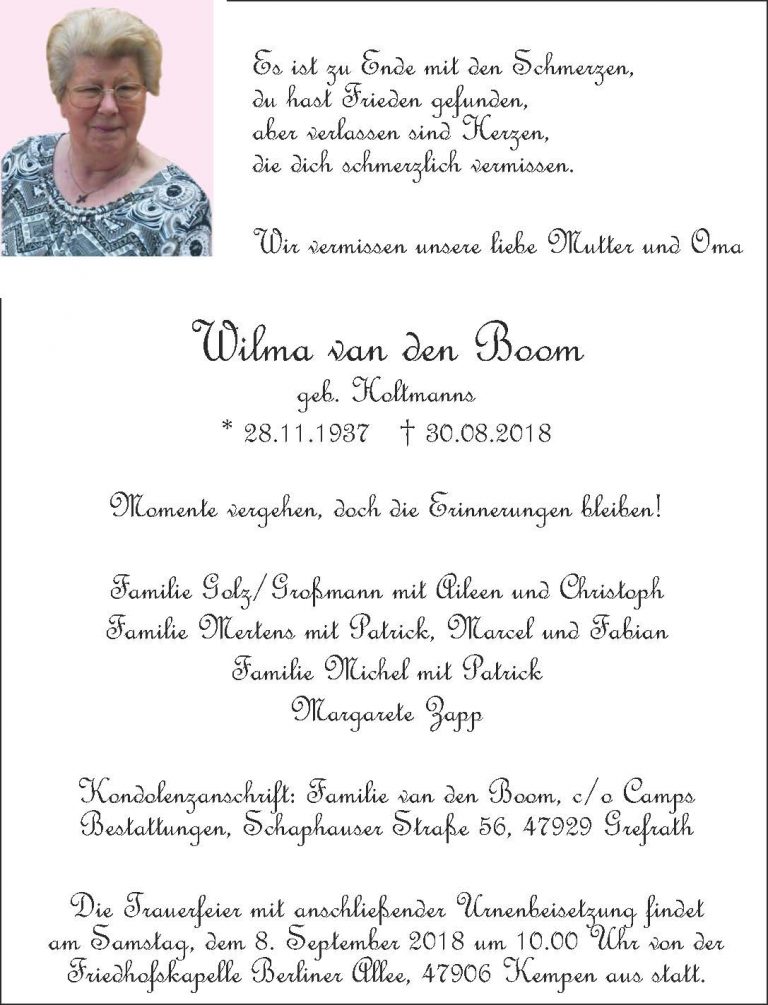 Es ist zu Ende mit den Schmerzen,
du hast Frieden gefunden,
aber verlassen sind Herzen,
die dich schmerzlich vermissen.
Wir vermissen unsere liebe Mutter und Oma
Wilma van den Boom
geb. Holtmanns
* 28.11.1937 † 30.08.2018
Momente vergehen, doch die Erinnerungen bleiben!
Familie Golz/Großmann mit Aileen und Christoph
Familie Mertens mit Patrick, Marcel und Fabian
Familie Michel mit Patrick
Margarete Zapp
Kondolenzanschrift: Familie van den Boom, c/o Camps
Bestattungen, Schaphauser Straße 56, 47929 Grefrath
Die Trauerfeier mit anschließender Urnenbeisetzung findet
am Samstag, dem 8. September 2018 um 10.00 Uhr von der
Friedhofskapelle Berliner Allee, 47906 Kempen aus statt.